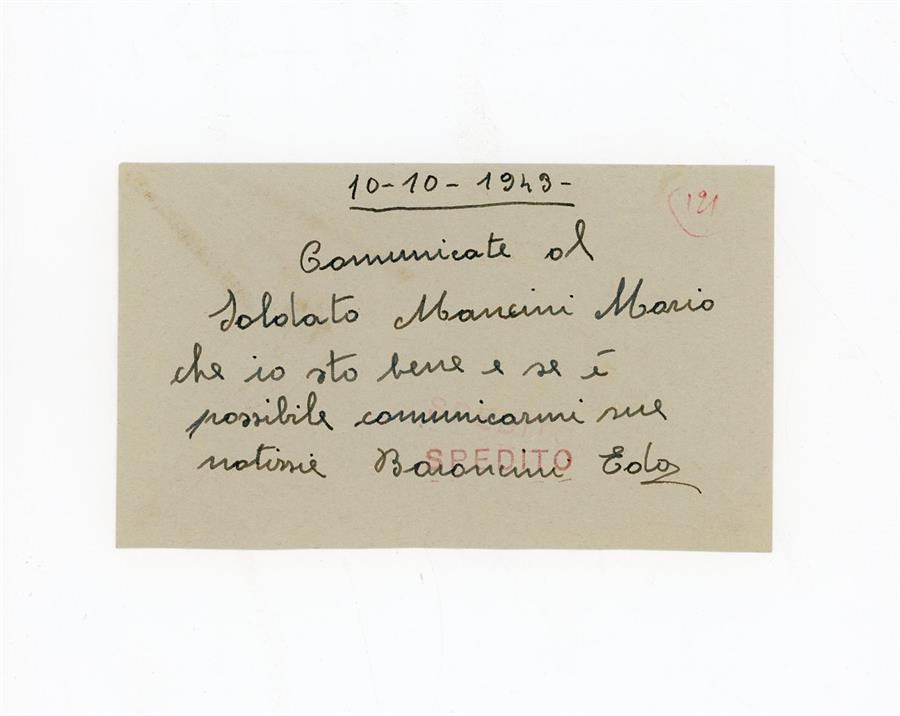 10-10-1943-
121
Comunicate al
Soldato Mancini Mario
che io sto bene e se è
possibile comunicarmi sue
notizie Baroncini Edo
SPEDITO